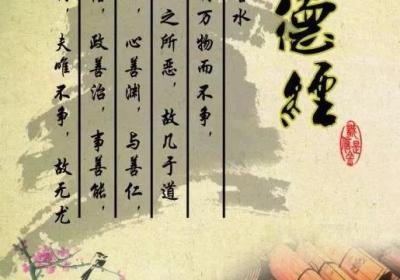 德經
水
万物而不争，
之所恶，故几于道
，心善渊，与善仁，
，政善治，事善能，
，夫唯不争，故无尤